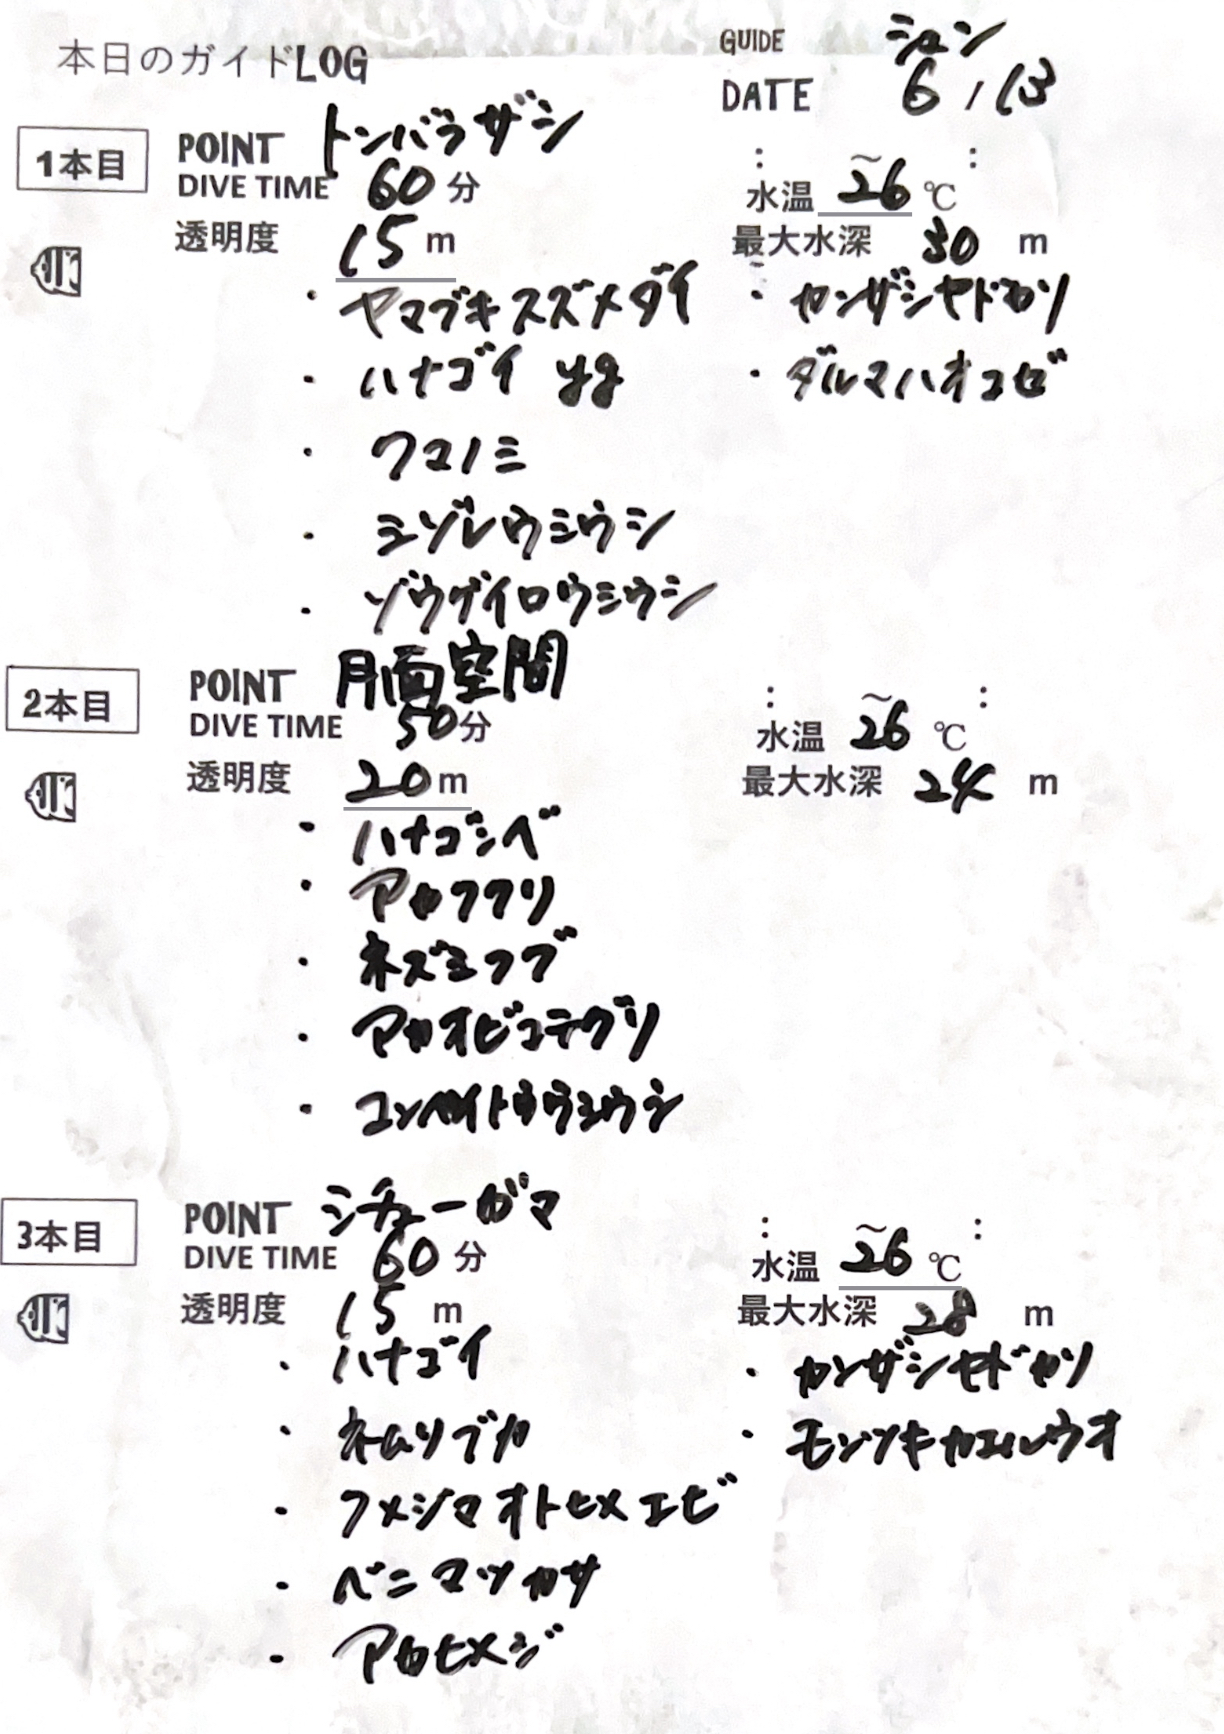 本日のガイドLOG
GUIDE シュン
DATE 6 / 13
1本目
POINT トンバラザシ
DIVE TIME 60 分
: ~ :
水温 26 ℃
透明度 15 m
最大水深 30 m
・ヤマブキスズメダイ
・カンザシヤドカリ
・ハナゴイ yg
・ダルマハオコゼ
・クマノミ
・ミゾレウミウシ
・ゾウゲイロウミウシ
2本目
POINT 月面空間
DIVE TIME 50分
: ~ :
水温 26 ℃
透明度 20 m
最大水深 24 m
・ハナゴンベ
・アカククリ
・ネズミフグ
・アカオビコテグリ
・コンペイトウウミウシ
3本目
POINT シチューガマ
DIVE TIME 60 分
: ~ :
水温 26 ℃
透明度 15 m
最大水深 28 m
・ハナゴイ
・カンザシヤドカリ
・ネムリブカ
・モンツキカエルウオ
・フメジマオトヒメエビ
・ベニマツカサ
・アカヒメジ